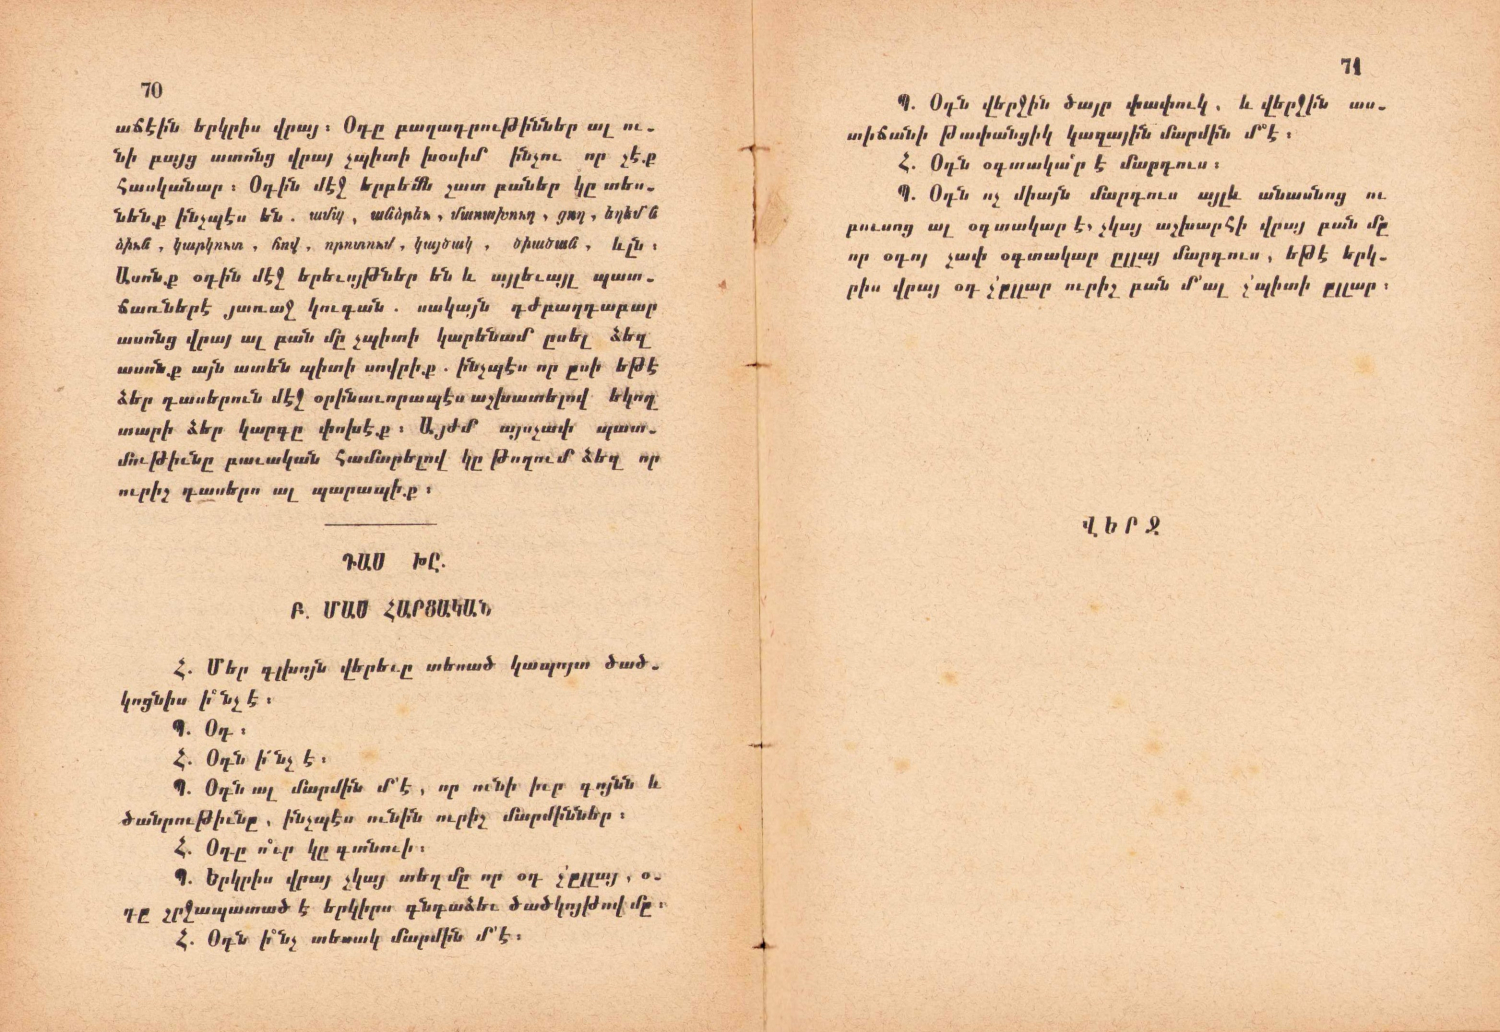 70
աճէին երկրիս վրայ։ Օդը բաղադրութիւններ ալ ու-
նի բայց ատոնց վրայ չպիտի խօսիմ ինչու որ չէ.ք
հասկանար։ Օդին մէջ երբեմն շատ բաներ կը տես-
նեն.ք ինչպէս են. ամպ, անձրեւ, մառախուղ, ցող, եղեմն
ձիւն, կարկուտ, հով, որոտում, կայծակ, ծիածան, ևլն։
Ասոն.ք օդին մէջ երեւոյթներ են և այլեւայլ պատ-
ճառներէ յառաջ կուգան. սակայն դժբաղդաբար
ասոնց վրայ ալ բան մը չպիտի կարենամ ըսել ձեզ
ասոն.ք այն ատեն պիտի սովրի.ք. ինչպէս որ ըսի եթէ
ձեր դասերուն մէջ օրինաւորապէս աշխատելով եկող
տարի ձեր կարգը փոխէ.ք։ Այժմ այսչափ պատ-
մութիւնը բաւական համարելով կը թողում ձեզ որ
ուրիշ դասերո ալ պարապի.ք։
ԴԱՍ ԽԸ.
Բ. ՄԱՍ ՀԱՐՑԱԿԱՆ
Հ. Մեր գլխոյն վերեւը տեսած կապոյտ ծած-
կոցնիս ի՞նչ է։
Պ. Օդ։
Հ. Օդն ի՞նչ է։
Պ. Օդն ալ մարմին մ՚է, որ ունի իւր գոյնն և
ծանրութիւնը, ինչպէս ունին ուրիշ մարմիններ։
Հ. Օդը ո՞ւր կը գտնուի։
Պ. Երկրիս վրայ չկայ տեղ մը որ օդ չ՚ըլլայ, օ-
դը շրջապատած է երկիրս գնդաձեւ ծածկոյթով մը։
Հ. Օդն ի՞նչ տեսակ մարմին մ՚է։
71
Պ. Օդն վերջին ծայր փափուկ, և վերջին աս-
տիճանի թափանցիկ կազային մարմին մ՚է։
Հ. Օդն օգտակա՞ր է մարդուս։
Պ. Օդն ոչ միայն մարդուս այլև անասնոց ու
բուսոց ալ օգտակար է, չկայ աշխարհի վրայ բան մը
որ օդոյ չափ օգտակար ըլլայ մարդուս, եթէ երկ-
րիս վրայ օդ չ՚ըլլար ուրիշ բան մ՚ալ չ՚պիտի ըլլար։
ՎԵՐՋ